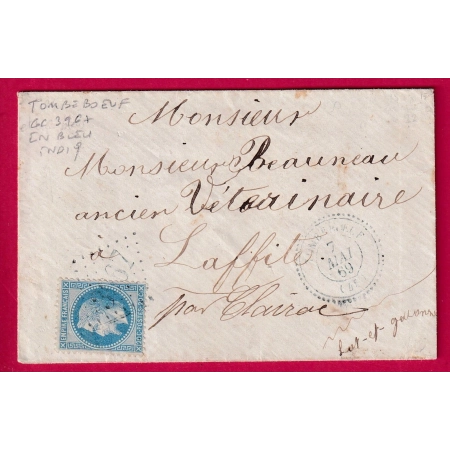 TOMBEBOEUF
GC 3967
EN BLEU
INDI 9
Monsieur
Monsieur Beauneau
ancien Vétérinaire
a
Laffite
par Clairac
Lot-et-garonne
7
MAI
69
EMPIRE FRANÇAIS